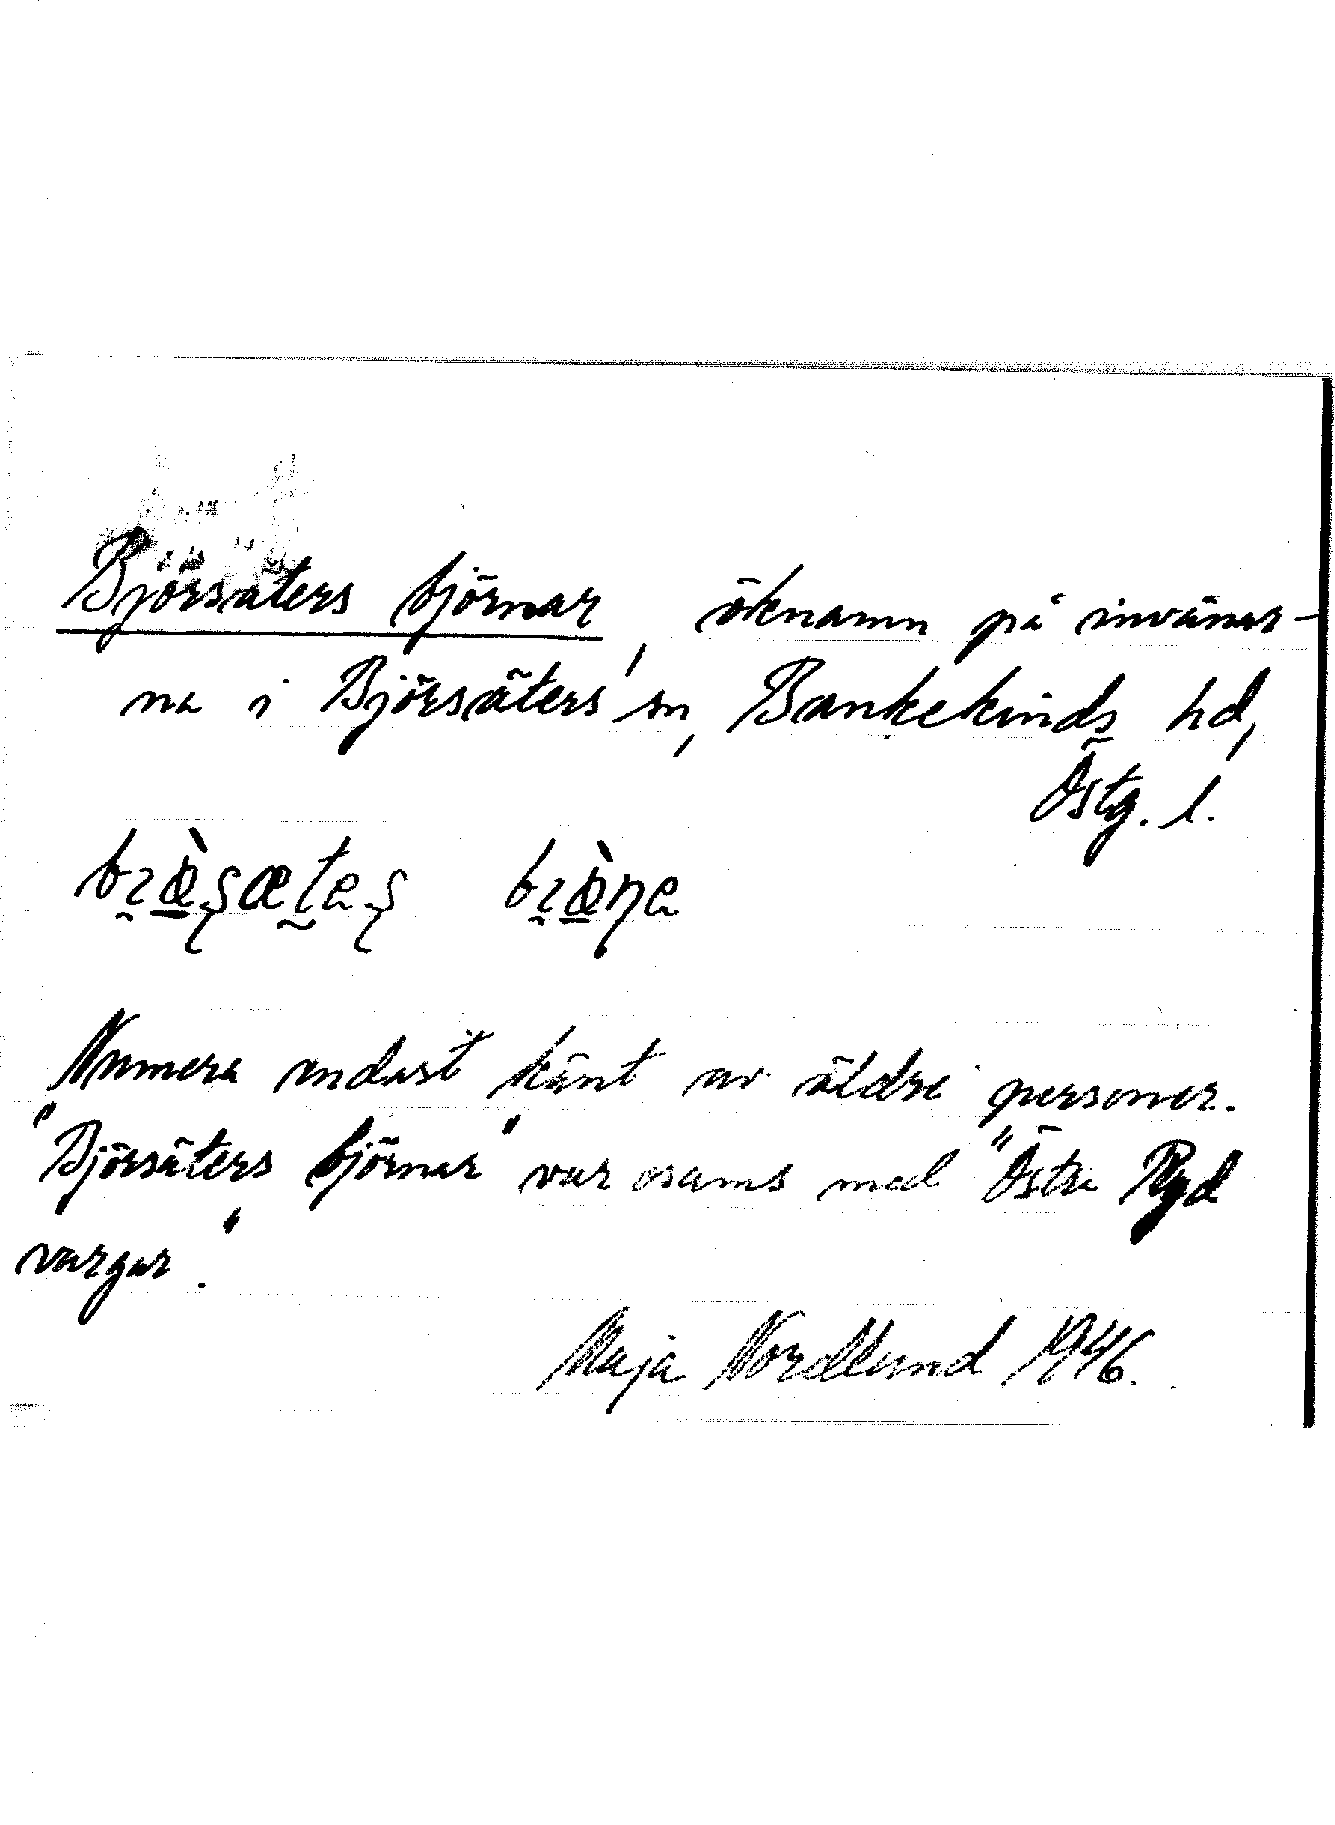 Björsäters björnar, öknamn på invånar-
na i Björsäters sn, Bankekinds hd,
Östg. l.
Numera endast känt av äldre personer.
"Björsäters björnar" var osams med "Östra Ryd
vargar".
Maja Nordlund 1946.